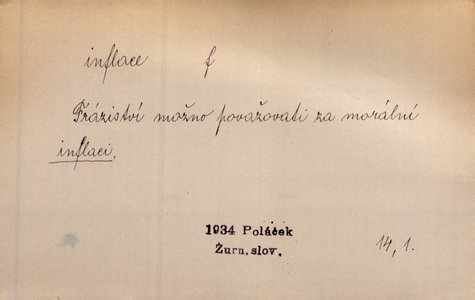 inflace f
Frázistvi možno považovati za morální
inflaci.
1934 Poláček
Žurn. slov.
14, 1.